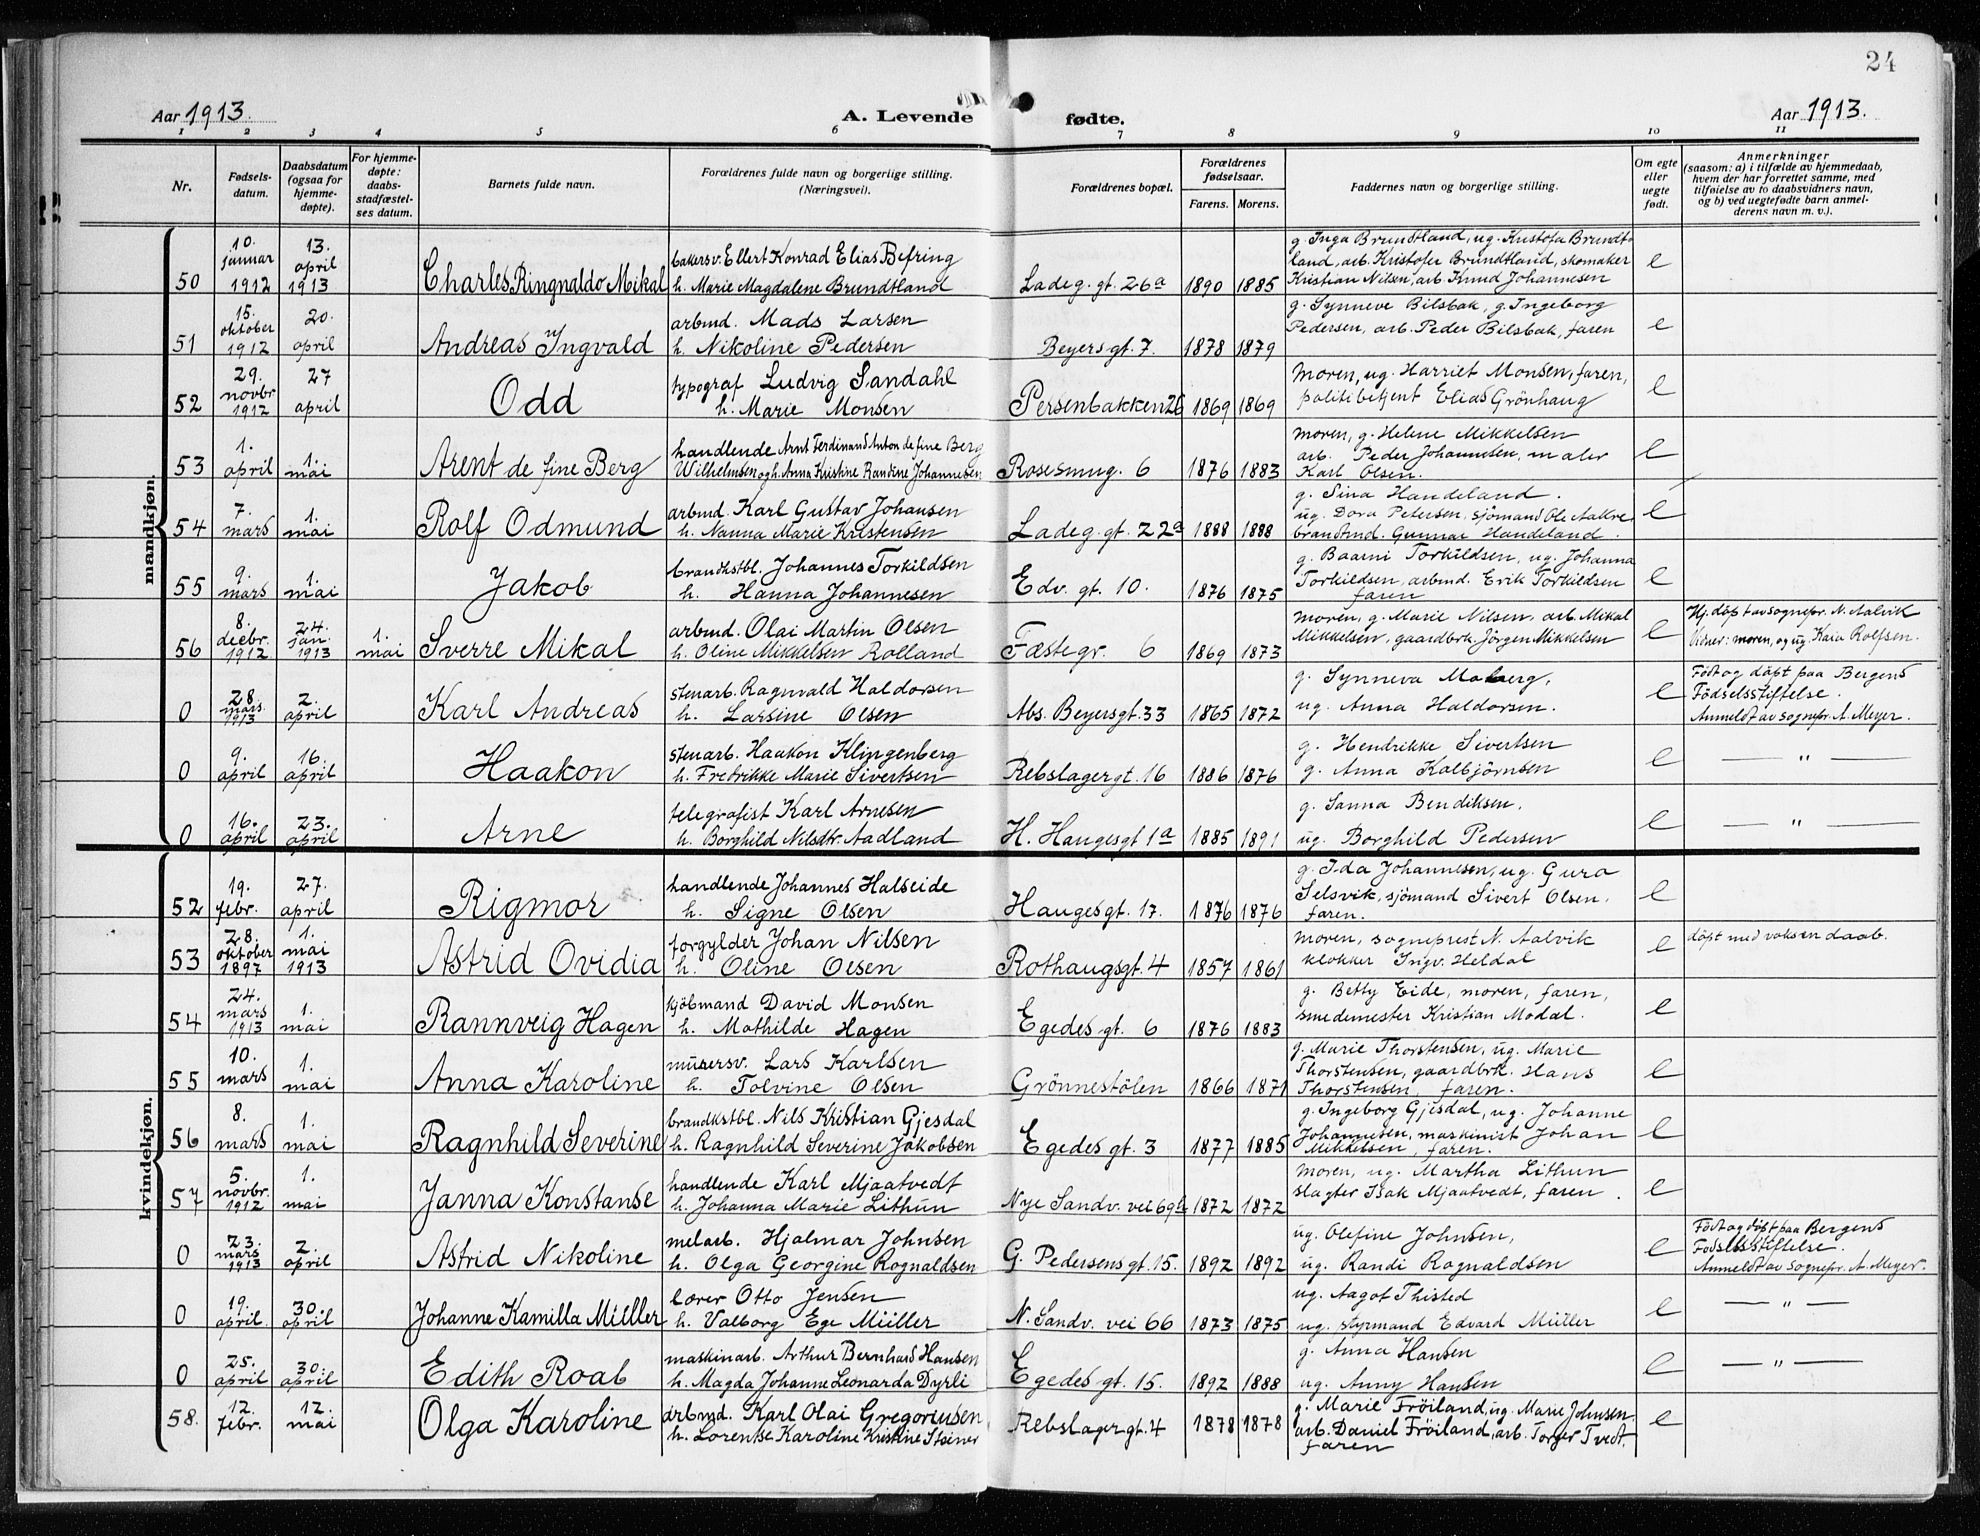 24
Aar 1913.
A. Levende
fødte.
Aar 1913.
1 2 3 4 5 6 7 8 9 10 11
Nr.
Fødsels-
datum.
Daabsdatum
(ogsaa for
hjemme-
døpte).
For hjemme-
døpte:
daabs-
stadfæstel-
ses datum.
Barnets fulde navn.
Forældrenes fulde navn og borgerlige stilling.
(Næringsvei).
Forældrenes bopæl.
Forældrenes
fødselsaar.
Farens. Morens.
Faddernes navn og borgerlige stilling.
Om egte
eller
uegte
født.
Anmerkninger
(saasom: a) i tilfælde av hjemmedaab,
hvem der har forrettet samme, med
tilføielse av to daabsvidners navn,
og b) ved uegtefødte barn anmel-
derens navn m. v.).
mandkjøn.
50 10. januar 1912 13 april 1913 Charles Ringnaldo Mikal
bakersv. Ellert Konrad Elias Befring
h. Marie Magdalene Brundtland
Ladeg. gt. 26a 1890 1885
g. Inga Brundtland, ug. Kristofa Brundt-
land, arb. Kristofer Brundtland, skomaker
Kristian Nilsen, arb. Knud Johannesen
e
51 15. oktober 1912 20. april Andreas Ingvald
arbmd. Mads Larsen
h. Nikoline Pedersen
Beyersgt. 7. 1878 1879
g. Synneve Bilsbak, g. Ingeborg
Pedersen, arb. Peder Bilsbak, faren
e
52 29. novbr 1912 27 april Odd
typograf Ludvig Sandahl
h. Marie Monsen
Persenbakken 26 1869 1869
moren, ug. Harriet Monsen, faren,
politibetjent Elias Grönhaug
e
53 1. april 1. mai Arent de fine Berg
handlende Arnt Ferdinand Anton de fine Berg
Wilhelmsen og h. Anna Kristine Randine Johannesen
Rosesmug. 6 1876 1883
moren, g. Helene Mikkelsen
arb. Peder Johannesen, maler
Karl Olsen.
e
54 7. mars 1. mai Rolf Odmund
arbmd. Karl Gustav Johansen
h. Nanna Marie Kristensen
Ladeg. gt. 22a 1888 1888
g. Sina Handeland.
ug. Dora Petersen, sjömand Ole Aakre
brandtmd. Gunnar Handeland.
e
55 9. mars 1. mai Jakob
brandkstbl. Johannes Torkildsen
h. Hanna Johannesen
Edv. gt. 10. 1876 1875
g. Baarni Torkildsen, ug. Johanna
Torkildsen, arbmd. Erik Torkildsen
faren
e
56 8. decbr. 1912 24. jan. 1913 1. mai Sverre Mikal
arbmd. Olai Martin Olsen
h. Oline Mikkelsen Rolland
Fæstegr. 6 1869 1873
moren, g. Marie Nilsen, arb. Mikal
Mikkelsen, gaardbrk. Jörgen Mikkelsen
e
Hj. döpt av sognepr. N. Aalvik
Vidner: moren, og ug. Kaia Rolfsen.
0 28. mars. 1913 2. april Karl Andreas
stenarb. Ragnvald Haldorsen
h. Larsine Olsen
Abs. Beyersgt. 33 1865 1872
g. Synneva Moberg,
ug. Anna Haldorsen.
e
Födt og döpt paa Bergens
Födselsstiftelse.
Anmeldt av sognepr. A. Meyer.
0 9. april 16. april Haakon
stenarb. Haakon Klingenberg
h. Fredrikke Marie Sivertsen
Rebslagergt. 16 1886 1876
g. Hendrikke Sivertsen
g. Anna Kolbjörnsen
e — " —
0 16. april 23. april Arne
telegrafist Karl Arnesen
h. Borghild Nilsdtr. Aadland
H. Haugesgt 1a 1885 1891
g. Sanna Bendiksen,
ug. Borghild Pedersen
e — " —
kvindekjøn.
52 19. febr. 27. april Rigmor
handlende Johannes Halseide
h. Signe Olsen
Haugesgt. 17. 1876 1876
g. Ida Johannesen, ug. Guro
Selsvik, sjömand Sivert Olsen,
faren.
e
53 28. oktober 1897 1. mai 1913 Astrid Ovidia
forgylder Johan Nilsen
h. Oline Olsen
Rothaugsgt. 4 1857 1861
moren, sogneprest N. Aalvik
klokker Ingv. Heldal
e
döpt med voksen daab.
54 24. mars 1913 1. mai Rannveig Hagen
kjöbmand David Monsen
h. Mathilde Hagen
Egedes gt. 6 1876 1883
g. Betty Eide, moren, faren,
smedemester Kristian Modal.
e
55 10. mars 1. mai Anna Karoline
murersv. Lars Karlsen
h. Tolvine Olsen
Grönnestölen 1866 1871
g. Marie Thorstensen, ug. Marie
Thorstensen, gaardbrk. Hans
Thorstensen, faren.
e
56 8. mars 1. mai Ragnhild Severine
brandkstbl. Nils Kristian Gjesdal
h. Ragnhild Severine Jakobsen
Egedes gt. 3 1877 1885
g. Ingeborg Gjesdal, ug. Johanne
Johannesen, maskinist Johan
Mikkelsen, faren.
e
57 5. novbr. 1912 1. mai Janna Konstanse
handlende Karl Mjaatvedt
h. Johanna Marie Lithun
Nye Sandv. vei 69b 1872 1872
moren, ug. Martha Lithun
slagter Isak Mjaatvedt, faren.
e
0 23. mars 1913 2. april Astrid Nikoline
melarb. Hjalmar Johnsen
h. Olga Georgine Rognaldsen
G. Pedersens gt. 15. 1892 1892
ug. Olefine Johnsen,
ug. Randi Rognaldsen
e
Födt og döpt paa Bergens
Födselsstiftelse.
Anmeldt av Sognepr. A. Meyer.
0 19. april. 30. april Johanne Kamilla Müller
lærer Otto Jensen
h. Valborg Ege Müller
N. Sandv. vei 66 1873 1875
ug. Aagot Thisted
ug. styrmand Edvard Müller
e — " —
0 25. april 30. april Edith Roab
maskinarb. Arthur Bernhard Hansen
h. Magda Johanne Leonarda Dyrli
Egedes gt. 15. 1892 1888
g. Anna Hansen
ug. Anny Hansen
e — " —
58. 12. febr. 12. mai Olga Karoline
arbmd. Karl Olai Gregoriusen
h. Lorentse Karoline Kristine Steiner
Rebslagergt. 4 1878 1878
g. Marie Fröiland, ug. Marie Johnsen
arb. Daniel Fröiland, arb. Torger Tvedt,
faren
e